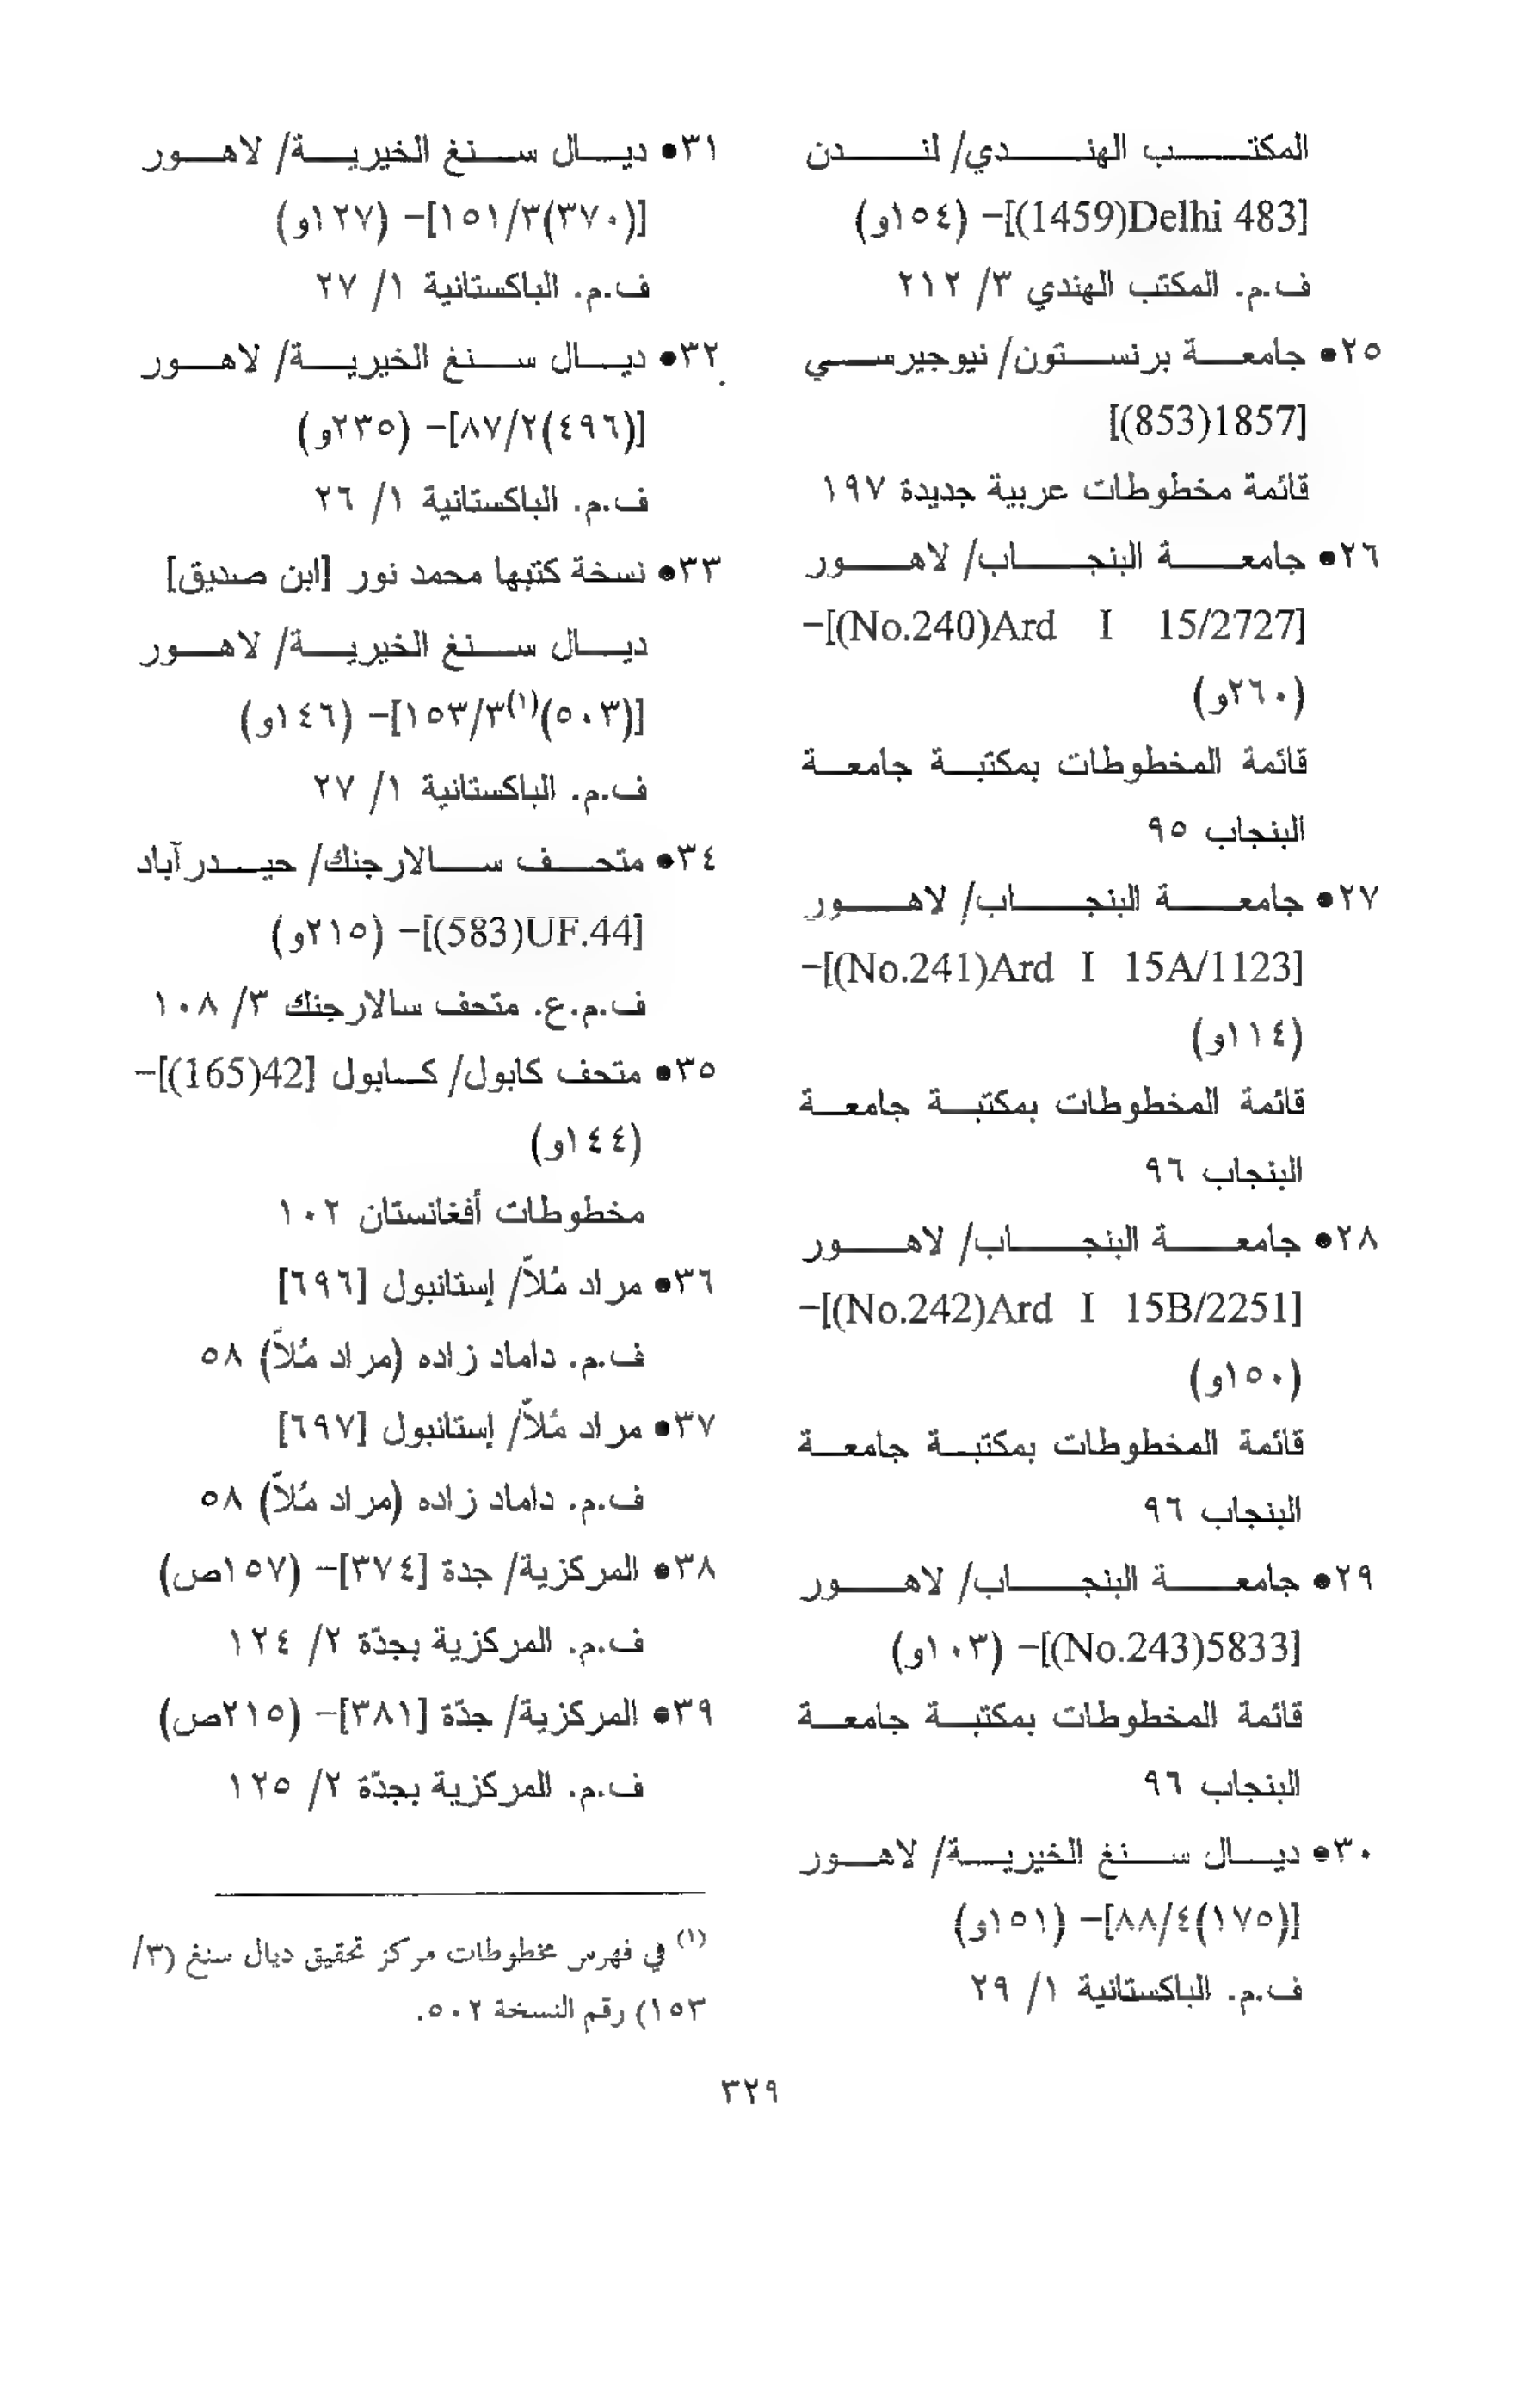 المكتب الهندي/ لندن
[Delhi 483(1459)]- (١٥٤و)
ف.م. المكتب الهندي ٣/ ٢١٢
٢٥• جامعة برنستون/ نيوجيرسي
[1857(853)]
قائمة مخطوطات عربية جديدة ١٩٧
٢٦• جامعة البنجاب/ لاهور
[Ard I 15/2727(No.240)]-
(٢٦٠و)
قائمة المخطوطات بمكتبة جامعة
البنجاب ٩٥
٢٧• جامعة البنجاب/ لاهور
[Ard I 15A/1123(No.241)]-
(١١٤و)
قائمة المخطوطات بمكتبة جامعة
البنجاب ٩٦
٢٨• جامعة البنجاب/ لاهور
[Ard I 15B/2251(No.242)]-
(١٥٠و)
قائمة المخطوطات بمكتبة جامعة
البنجاب ٩٦
٢٩• جامعة البنجاب/ لاهور
[5833(No.243)]- (١٠٣و)
قائمة المخطوطات بمكتبة جامعة
البنجاب ٩٦
٣٠• ديال سنغ الخيرية/ لاهور
[(١٧٥)٨٨/٤]- (١٥١و)
ف.م. الباكستانية ١/ ٢٩
٣١• ديال سنغ الخيرية/ لاهور
[(٣٧٠)١٥١/٣]- (١٢٧و)
ف.م. الباكستانية ١/ ٢٧
٣٢• ديال سنغ الخيرية/ لاهور
[(٤٩٦)٨٧/٢]- (٢٣٥و)
ف.م. الباكستانية ١/ ٢٦
٣٣• نسخة كتبها محمد نور [ابن صديق]
ديال سنغ الخيرية/ لاهور
[(٥٠٣)(١)١٥٣/٣]- (١٤٦و)
ف.م. الباكستانية ١/ ٢٧
٣٤• متحف سالارجنك/ حيدرآباد
[UF.44(583)]- (٢١٥و)
ف.م.ع. متحف سالارجنك ٣/ ١٠٨
٣٥• متحف كابول/ كابول [42(165)]-
(١٤٤و)
مخطوطات أفغانستان ١٠٢
٣٦• مراد مُلاّ/ إستانبول [٦٩٦]
ف.م. داماد زاده (مراد مُلاّ) ٥٨
٣٧• مراد مُلاّ/ إستانبول [٦٩٧]
ف.م. داماد زاده (مراد مُلاّ) ٥٨
٣٨• المركزية/ جدة [٣٧٤]- (١٥٧ص)
ف.م. المركزية بجدّة ٢/ ١٢٤
٣٩• المركزية/ جدّة [٣٨١]- (٢١٥ص)
ف.م. المركزية بجدّة ٢/ ١٢٥
(١) في فهرس مخطوطات مركز تحقيق ديال سنغ (٣/
١٥٣) رقم النسخة ٥٠٢.
٣٢٩